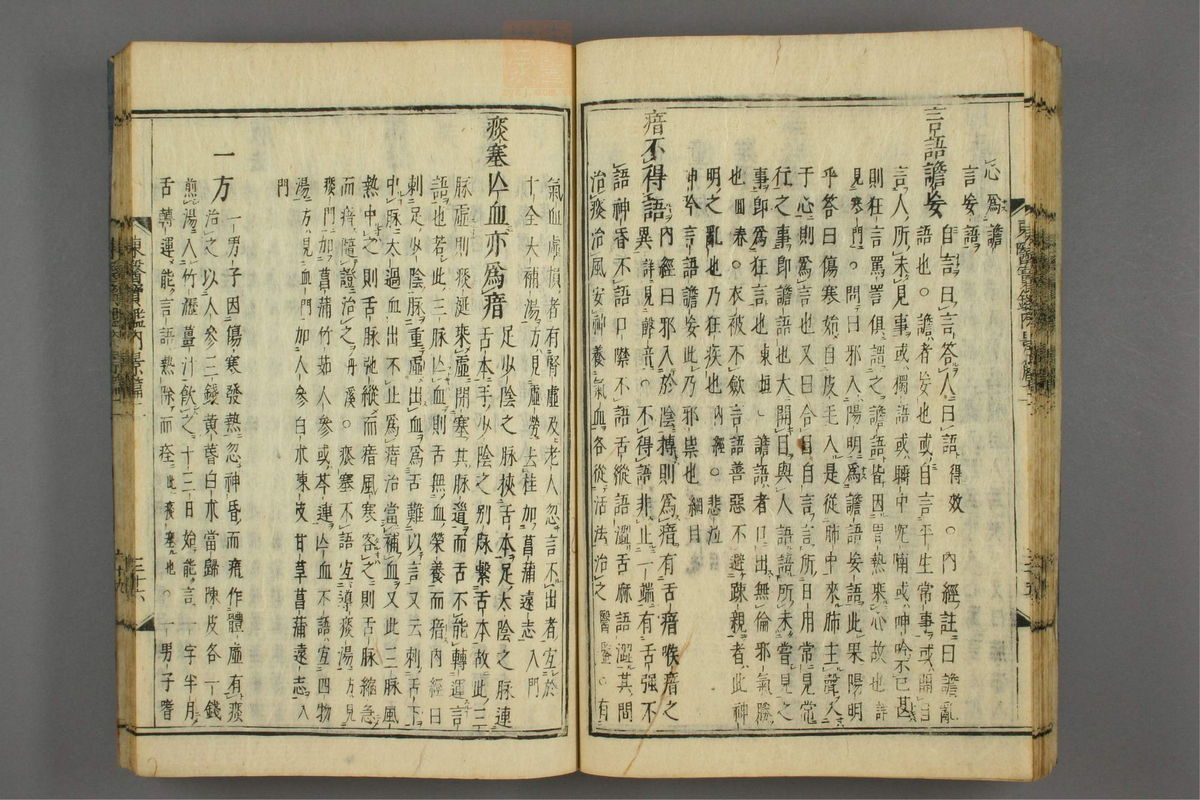 心爲譫
言妄語
言語譫妄 自言曰言答人曰語得效。內經註曰譫亂
語也。譫者妄也或自言平生常事或開目
言人所未見事或獨語或睡中呢喃或呻吟不已甚
則狂言罵詈俱謂之譫語皆因胃熱乘心故也詳
見寒門。問曰邪入陽明爲譫語妄語此果陽明
乎答曰傷寒茹白皮毛入是從肺中來肺主聲入
于心則爲言也又曰合目自言言所日用常見常
行之事即譫語也大開目與人語語所未嘗見之
事即爲狂言也東垣。譫語者口出無倫邪氣勝
也回春。衣被不斂言語善惡不避踈親者此神
明之亂也乃狂疾也內經。悲泣
呻吟言語譫妄此乃邪祟也綱目
瘖不得語 內經曰邪入於陰搏則爲瘖有舌瘖喉瘖之
異詳見聲音。不得語非止一端有舌强不
語神昏不語口噤不語舌縱語澁舌麻語澁其間
治痰治風安神養氣血各從活法治之醫鑒。有
氣血虛損者有腎虛及老人忽言不出者宜於
十全大補湯方見虛勞去桂加菖蒲遠志入門
痰塞亾血亦爲瘖 足少陰之脉挾舌本足太陰之脉連
舌本手少陰之別脉繫舌本故此三
脉虛則痰涎乘虛閉塞其脉道而舌不能轉運言
語也若此三脉亾血則舌無血榮養而瘖內經曰
刺足少陰脉重虛出血爲舌難以言又云刺舌下
中脉太過血出不止爲瘖治當補血又此三脉風
熱中之則舌脉弛縱而瘖風寒客之則舌脉縮急
而瘖隨證治之丹溪。痰塞不語宜導痰湯方見
痰門加菖蒲竹茹人參或芩連亾血不語宜四物
湯方見血門加人參白朮陳皮甘草菖蒲遠志入
門
一方 一男子因傷寒發熱忽神昏而瘖作體虛有痰
治之以人參三錢黃芪白朮當歸陳皮各一錢
煎湯入竹瀝薑汁飲之十二日始能言一字半月
舌轉運能言語熱除而痊此痰塞也。一男子嗜
東醫寶鑑內景篇
三十六